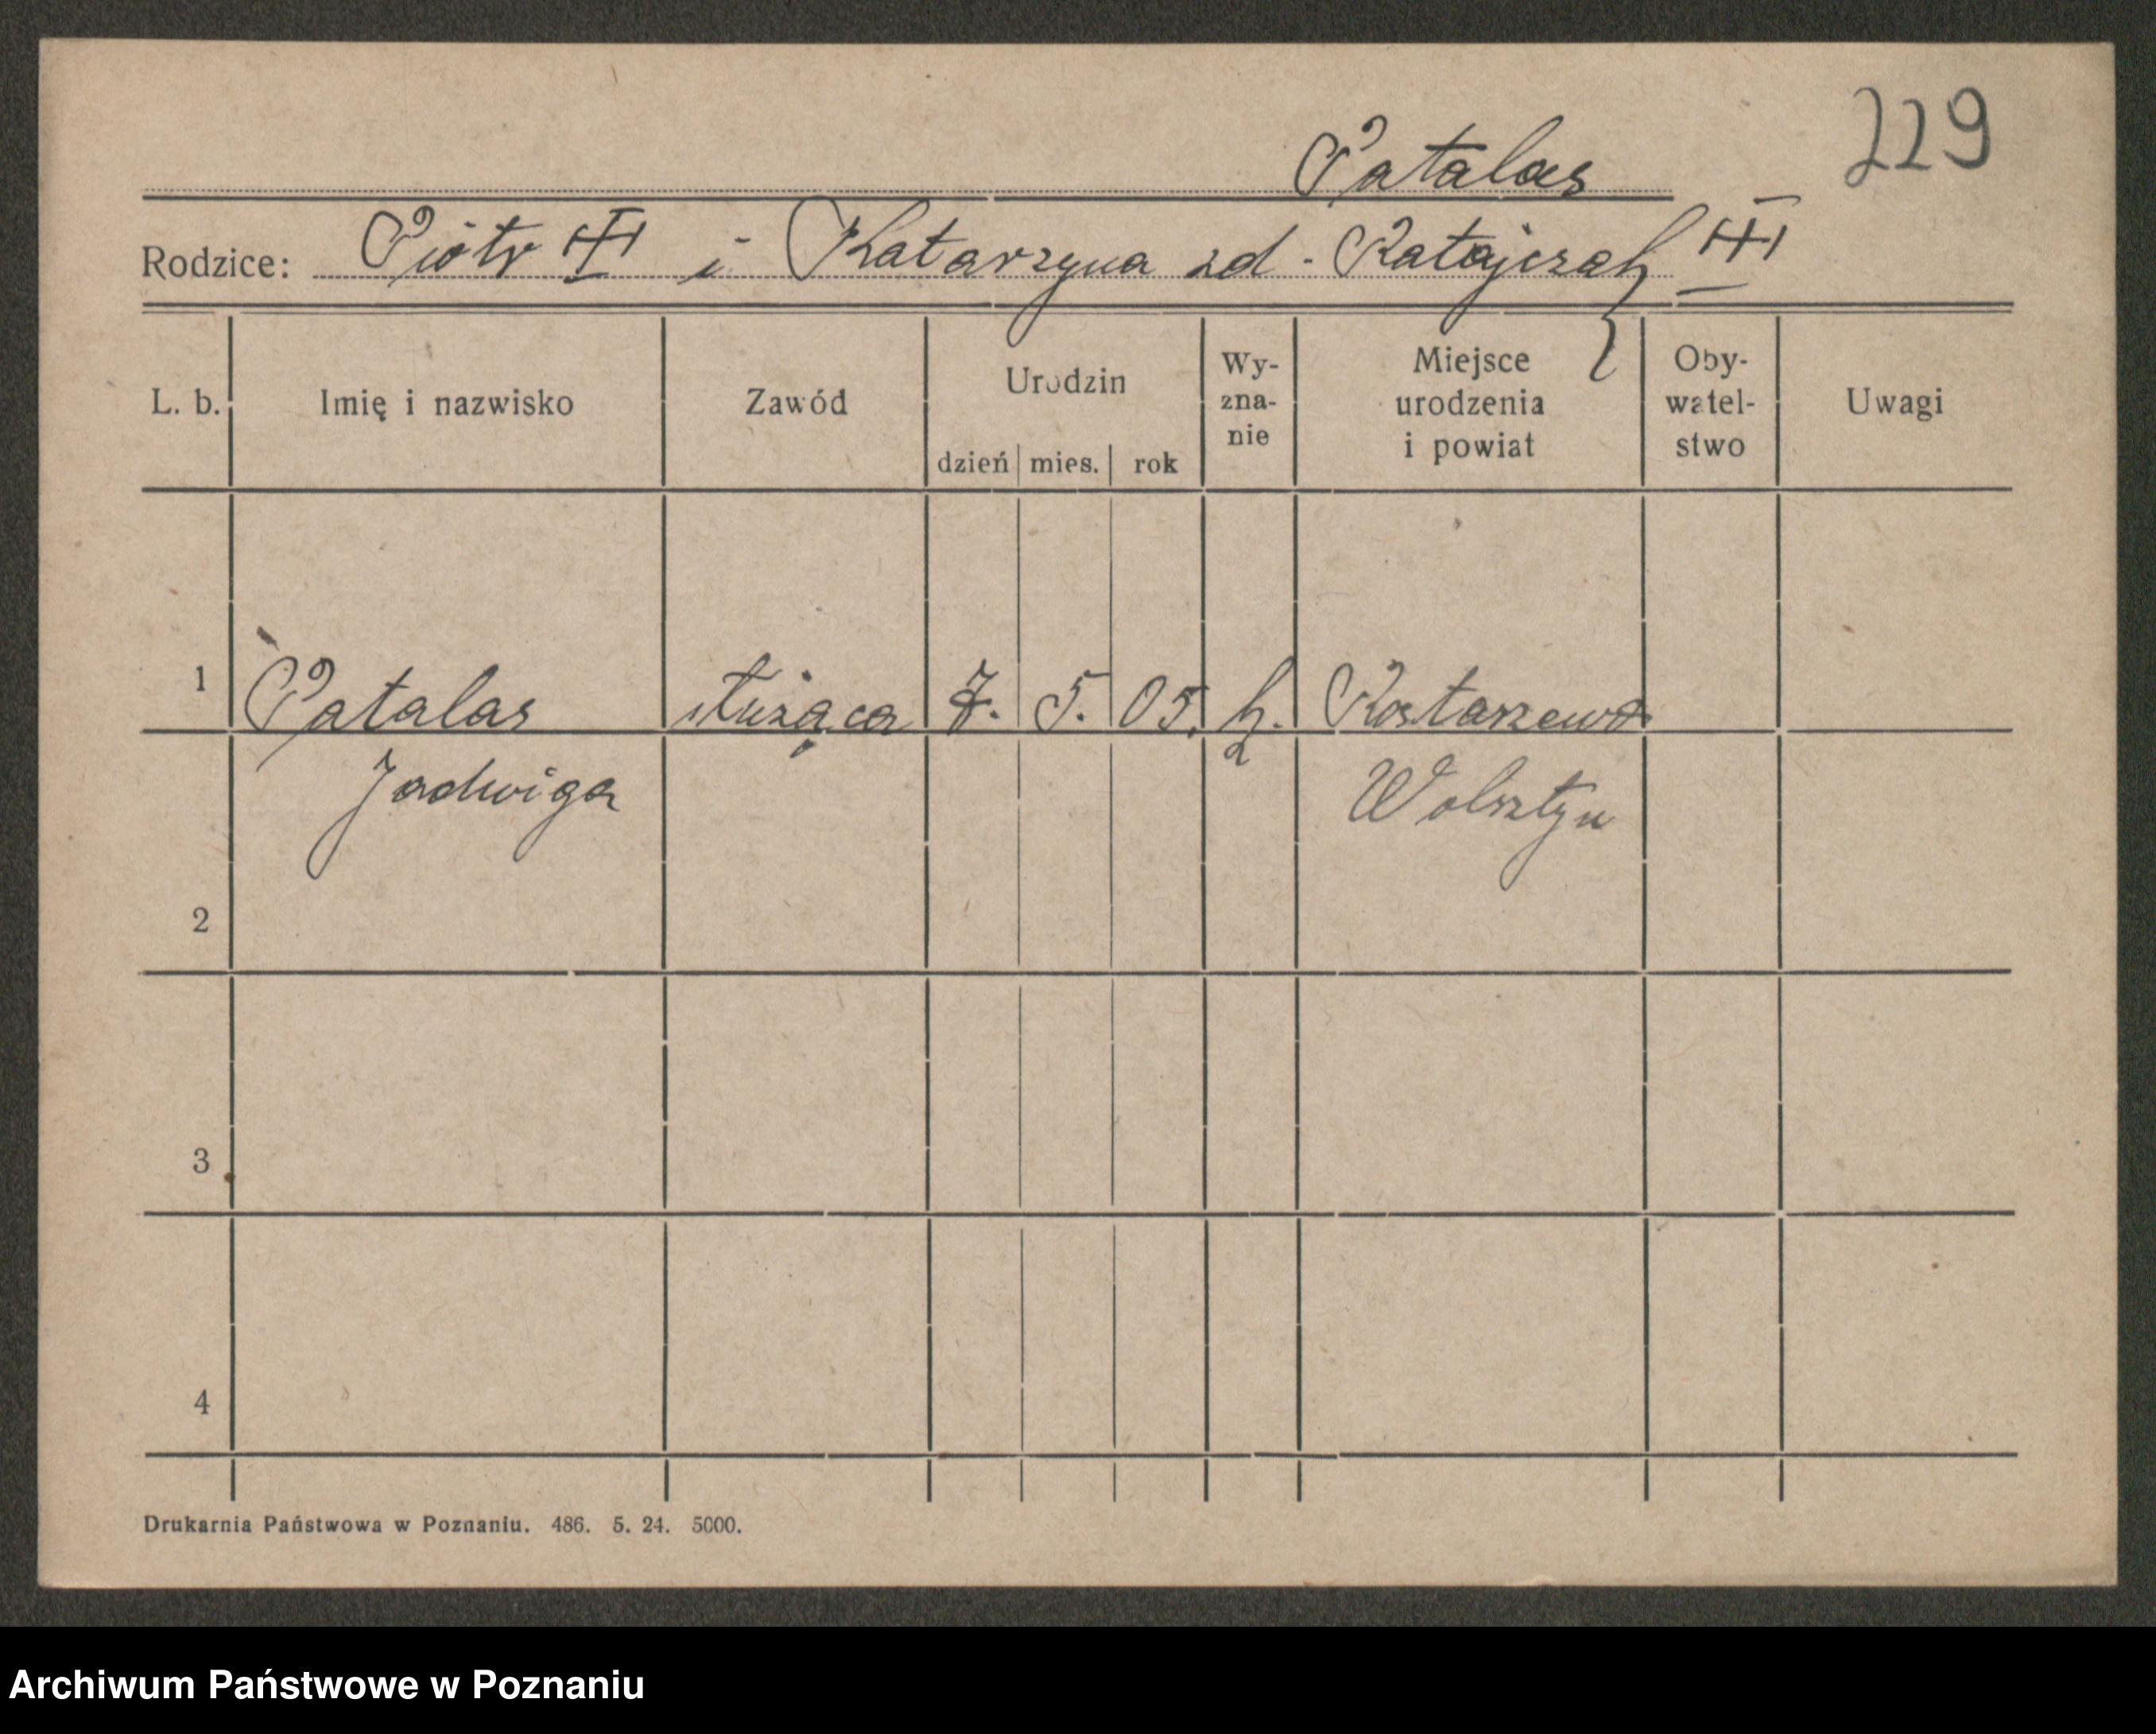 229
Patalas
Rodzice: Piotr ╫ i Katarzyna zd. Ratajczak ╫
L. b. Imię i nazwisko Zawód Urodzin dzień mies. rok Wy-zna-nie Miejsce urodzenia i powiat Oby-watel-stwo Uwagi
1 Patalas służąca 7. 5. 05. k. Rostarzewo
Jadwiga Wolsztyn
2
3
4
Drukarnia Państwowa w Poznaniu. 486. 5. 24. 5000.
Archiwum Państwowe w Poznaniu